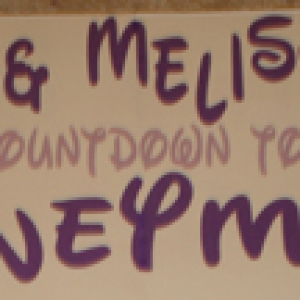 & MELIS
OUNTDOWN TO
NEYM